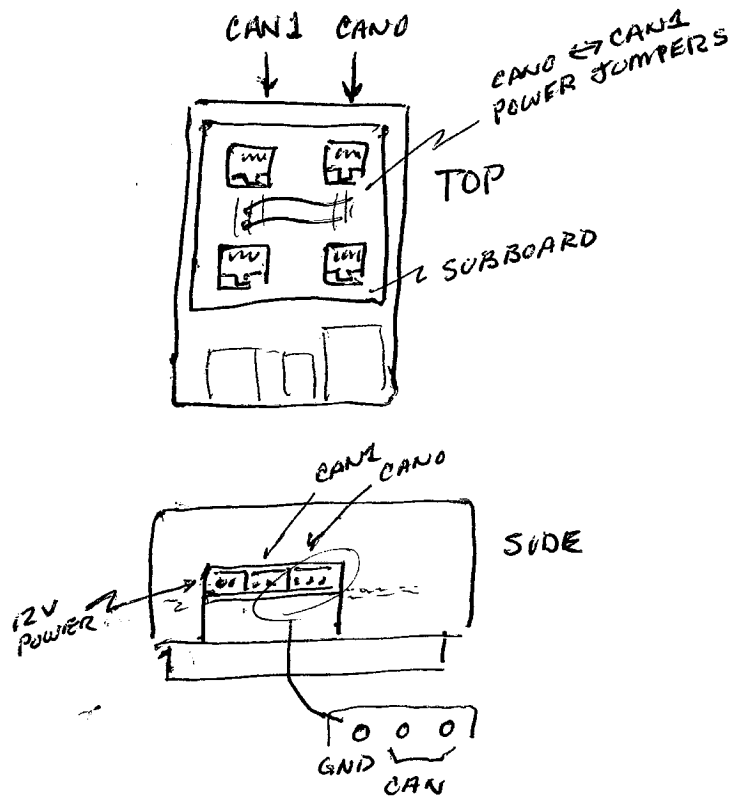 CAN1 CAN0
CAN0 ↔ CAN1
POWER JUMPERS
TOP
SUBBOARD
CAN1
CAN0
SIDE
12V
POWER
GND
CAN